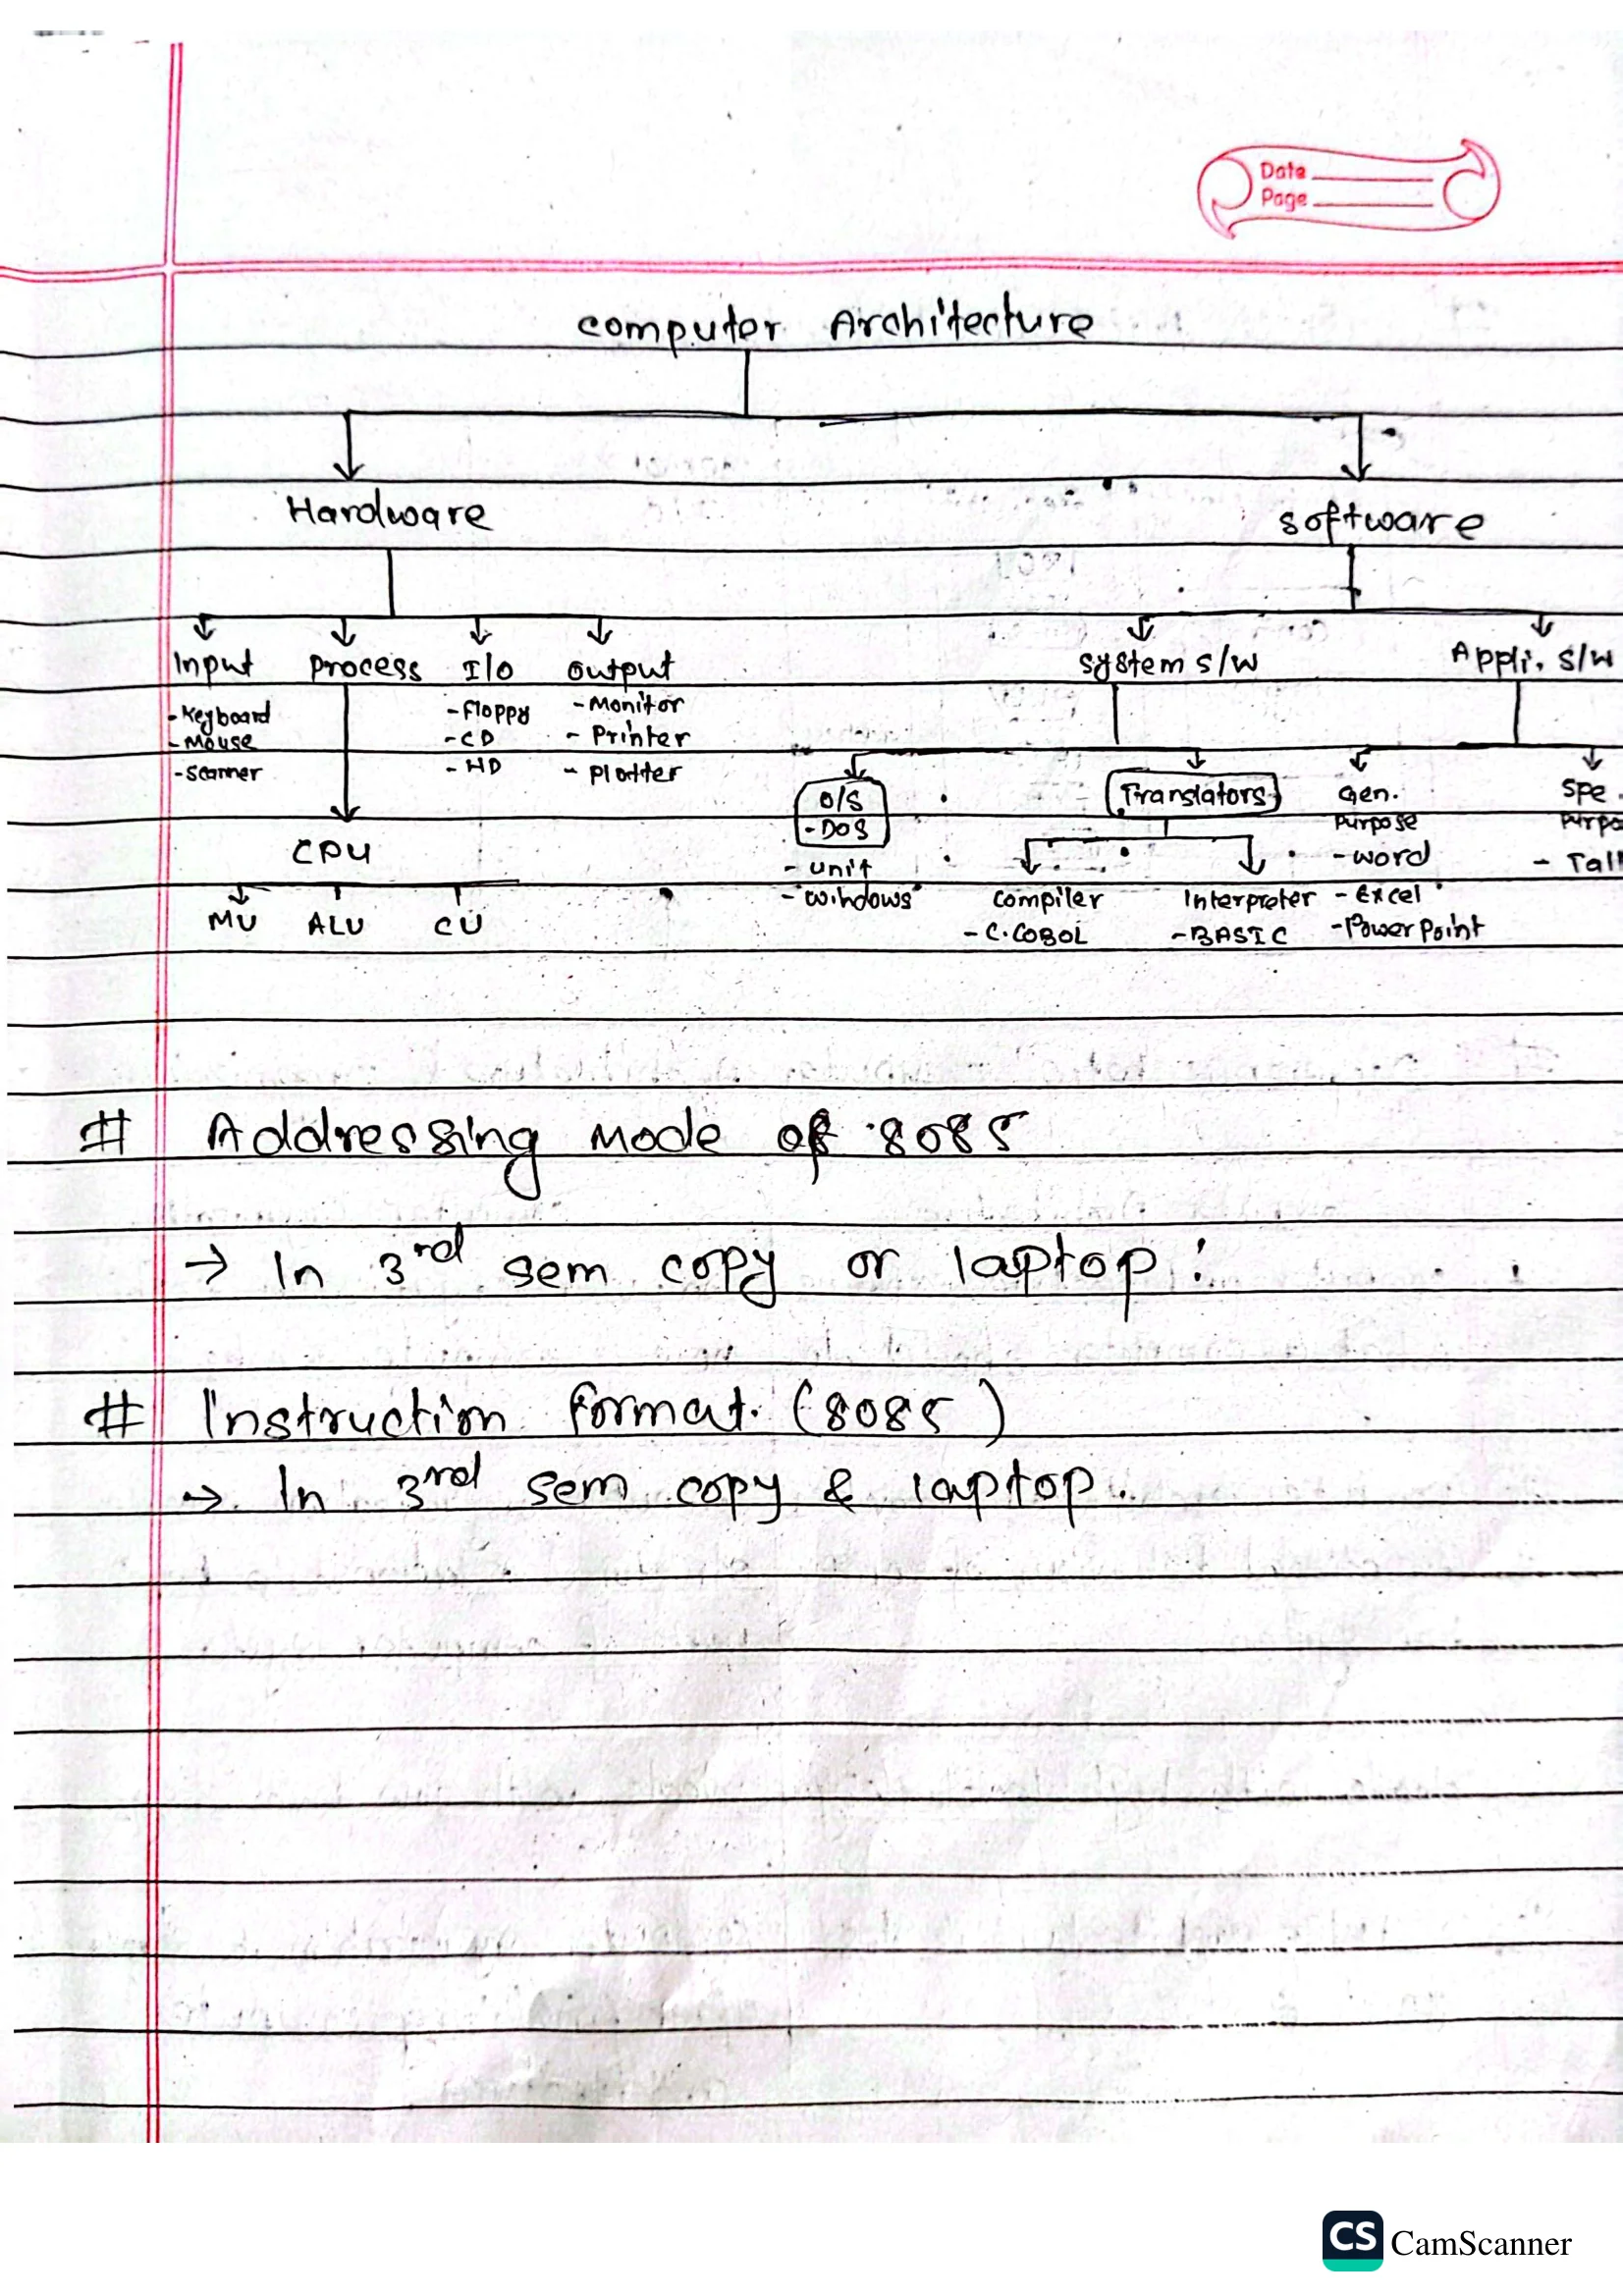 Date
Page
computer Architecture
Hardware software
Input process I/O output system s/w Appli. s/w
- Keyboard - Floppy - Monitor
- Mouse - CD - Printer
- Scanner - HD - plotter
O/S Translators Gen. spe.
- DOS purpose purpo
CPU - unit - word - Tall
- windows compiler Interpreter - Excel
MU ALU CU - C.COBOL - BASIC - PowerPoint
# Addressing mode of 8085
→ In 3rd sem copy or laptop.
# Instruction format. (8085)
→ In 3rd sem copy & laptop.
CS CamScanner